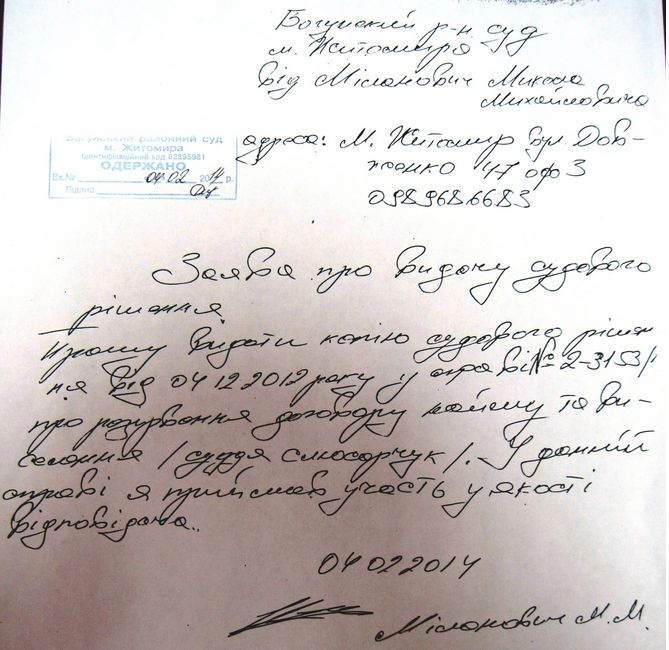 Богунський р-н. суд
м. Житомира
від Міланович Микола
Михайлович
адреса: м. Житомир вул. Дов-
женко 47 оф 3
0989686683
Богунський районний суд
м. Житомира
Ідентифікаційний код 02895981
ОДЕРЖАНО
Вх.№ 04 02 2014 р.
Підпис
Заява про видачу судового
рішення
Прошу видати копію судового рішен
ня від 04 12 2012 року у справі № 2-3153/1
про розірвання договору найму та ви-
селення / суддя Слюсарчук /. У данній
справі я приймав участь у якості
відповідача..
04 02 2014
Міланович М. М.